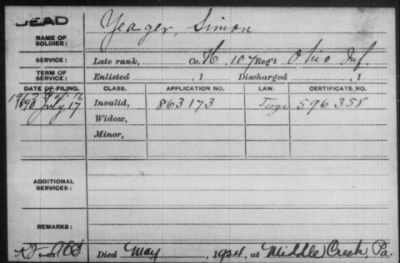 DEAD
NAME OF SOLDIER: Yeager, Simon
SERVICE: Late rank, Co. H, 107 Reg't Ohio Inf.
TERM OF SERVICE: Enlisted , 1 Discharged , 1
DATE OF FILING. CLASS. APPLICATION NO. CERTIFICATE NO.
1890 July 17 Invalid, 863173 596358
Widow,
Minor,
ADDITIONAL SERVICES:
REMARKS:
Died May 1924, at Middle Creek, Pa.